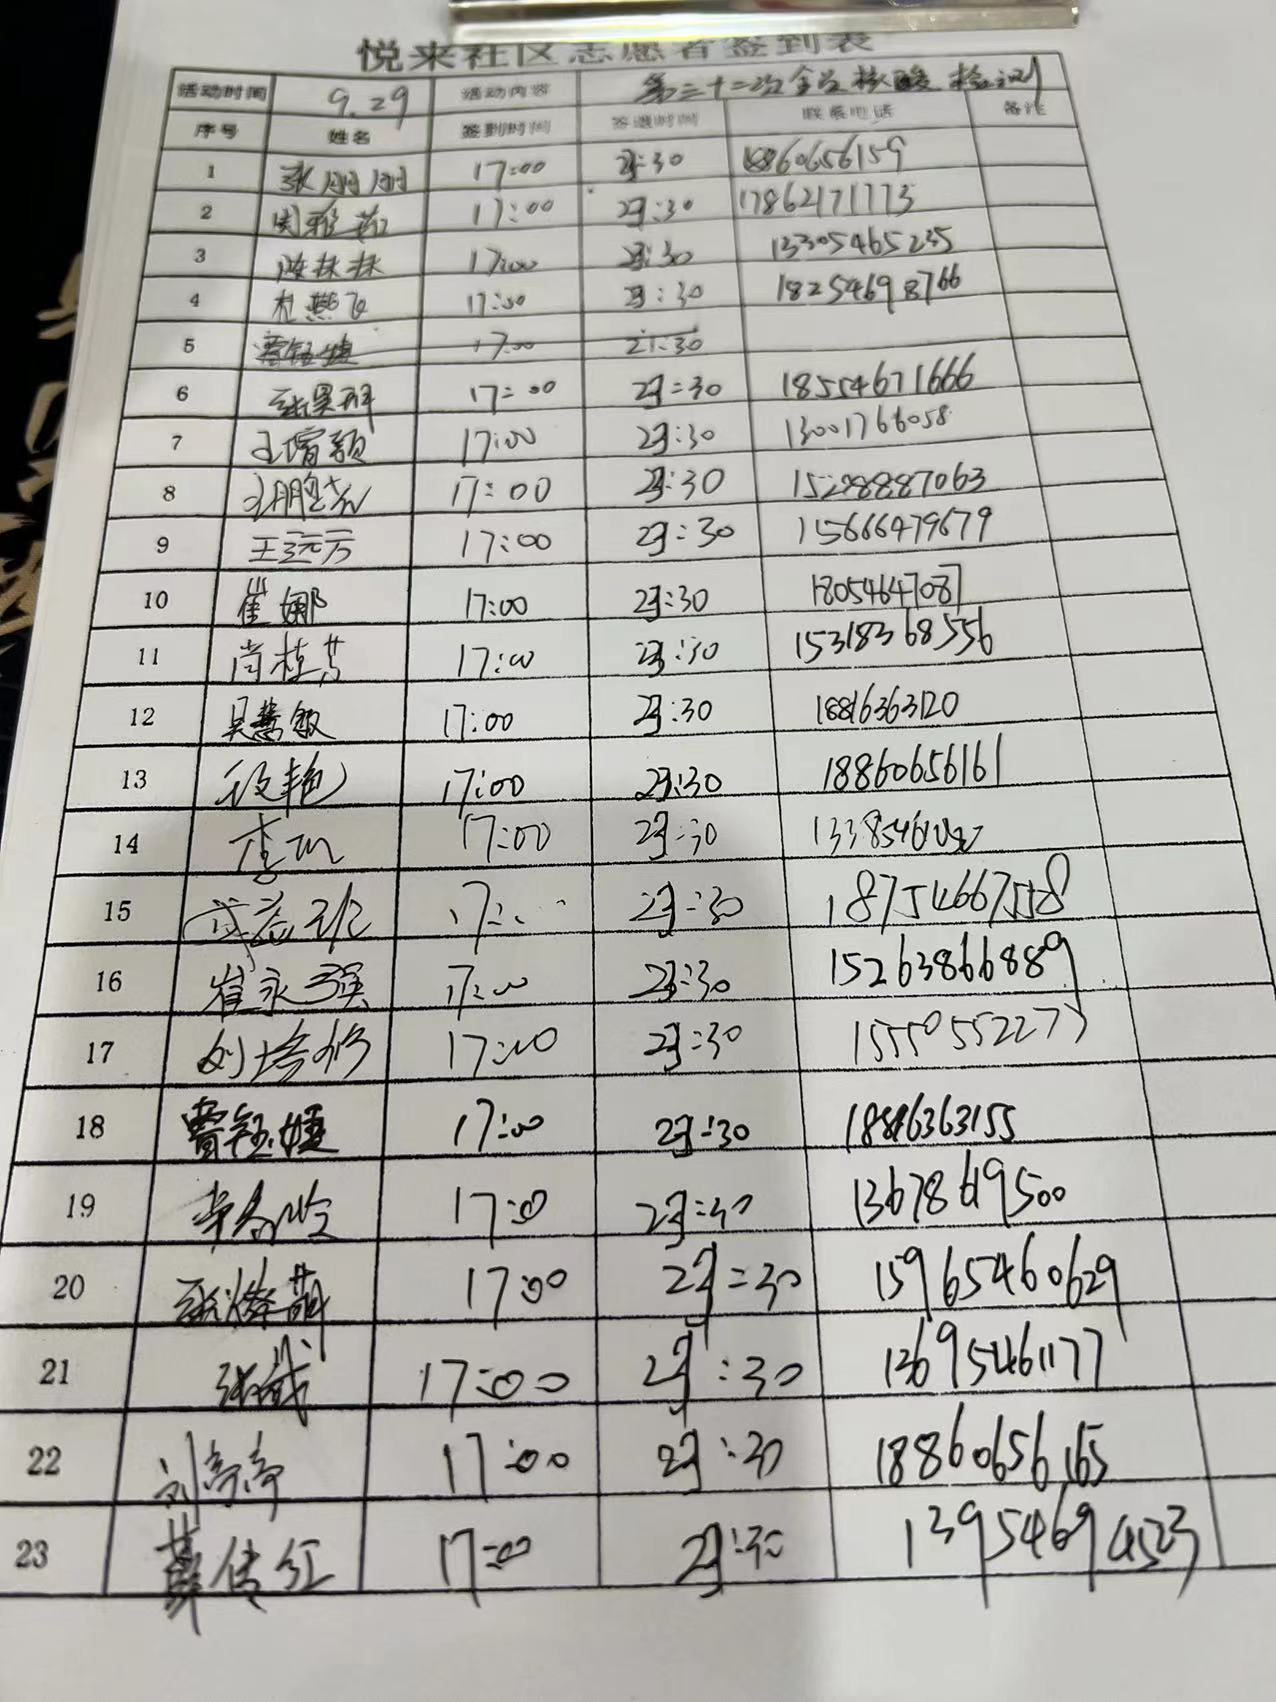 悦来社区志愿者签到表
活动时间 9.29 活动内容 第三十二次全员核酸检测
序号 姓名 签到时间 签退时间 联系电话 备注
1 张朋朋 17:00 23:30 18860656159
2 周雅茹 17:00 23:30 17862171773
3 陈妹妹 17:00 23:30 13305465235
4 杜燕飞 17:00 23:30 18254698766
5 曹钰婕 17:00 21:30
6 张昊研 17:00 23:30 18554671666
7 王增颖 17:00 23:30 13001766058
8 17:00 23:30 15288887063
9 王远方 17:00 23:30 15666479679
10 崔娜 17:00 23:30 18054647087
11 尚桂芳 17:00 23:30 15318368556
12 吴慧敏 17:00 23:30 18816363120
13 段艳 17:00 23:30 18860656161
14 17:00 23:30
15 17:00 23:30 18754667558
16 崔永强 17:00 23:30 15263866889
17 刘培修 17:00 23:30 15550552277
18 曹钰婕 17:00 23:30 18816363155
19 17:00 23:30 13678619500
20 17:00 23:30 15965460629
21 张武 17:00 23:30 13695461177
22 刘亭亭 17:00 23:30 18860656165
23 薛传红 17:00 23:30 13954694523